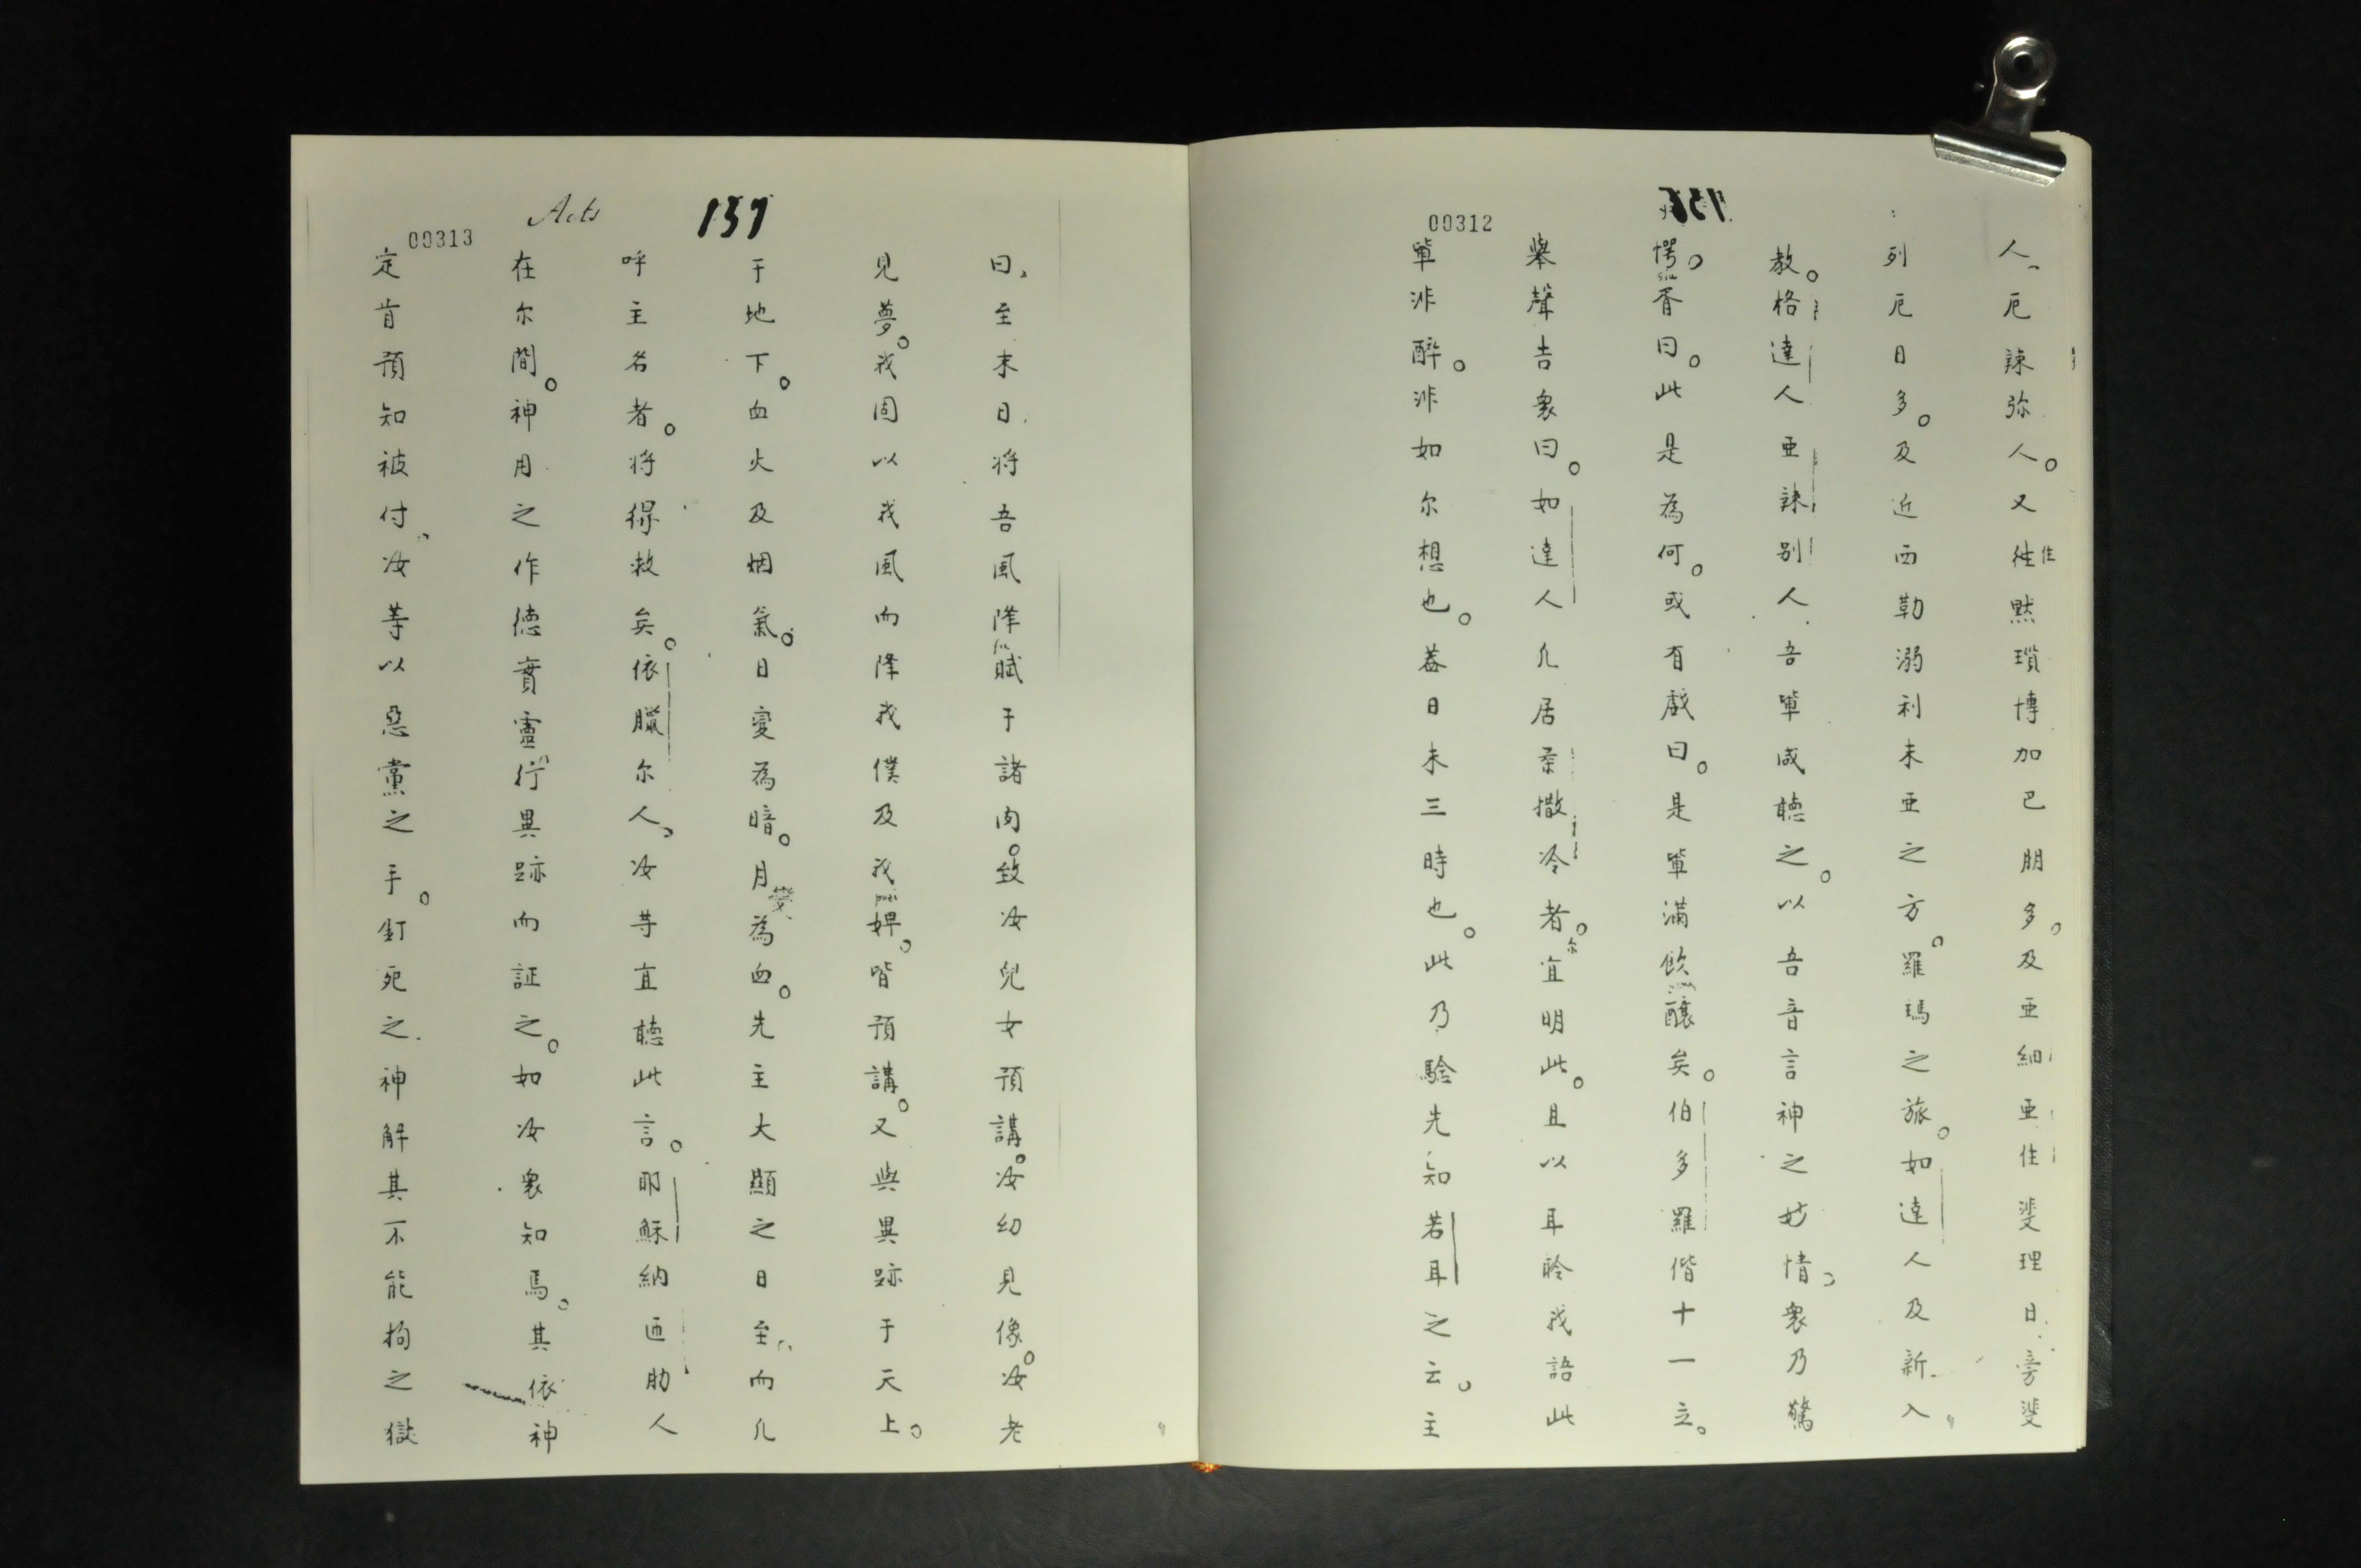 00312
人、厄諫弥人。又徃住黙瑣博加巴朋多。及亜細亜住斐理日旁斐
列厄日多。及近西勒溺利未亜之方。羅瑪之旅。如達人及新入
教。格達人亜諫別人吾軰咸聴之。以吾音言神之妙情。衆乃驚
愕。胥曰。此是為何。或有戲曰。是軰滿飲釀矣。伯多羅偕十一立。
舉聲吿衆曰。如達人凢居柰撒冷者。尔宜明此。且以耳聆我語此
軰非醉。非如尔想也。葢日未三時也。此乃驗先知若耳之云。主
Acts
157
00313
曰、至末日将吾風降賦于諸肉。致汝兒女預講。汝幼見像。汝老
見夢。我固以我風而降我僕及我婢。皆預講。又與異跡于天上。
于地下。血火及烟氣。日變為暗。月變為血。先主大顯之日至、而凢
呼主名者。将得救矣。依臘尔人、汝等宜聴此言。耶穌納匝肋人
在尔間。神用之作德實靈行異跡而証之。如汝衆知焉。其依神
定肯預知被付、汝等以惡黨之手。釘死之神解其不能拘之獄